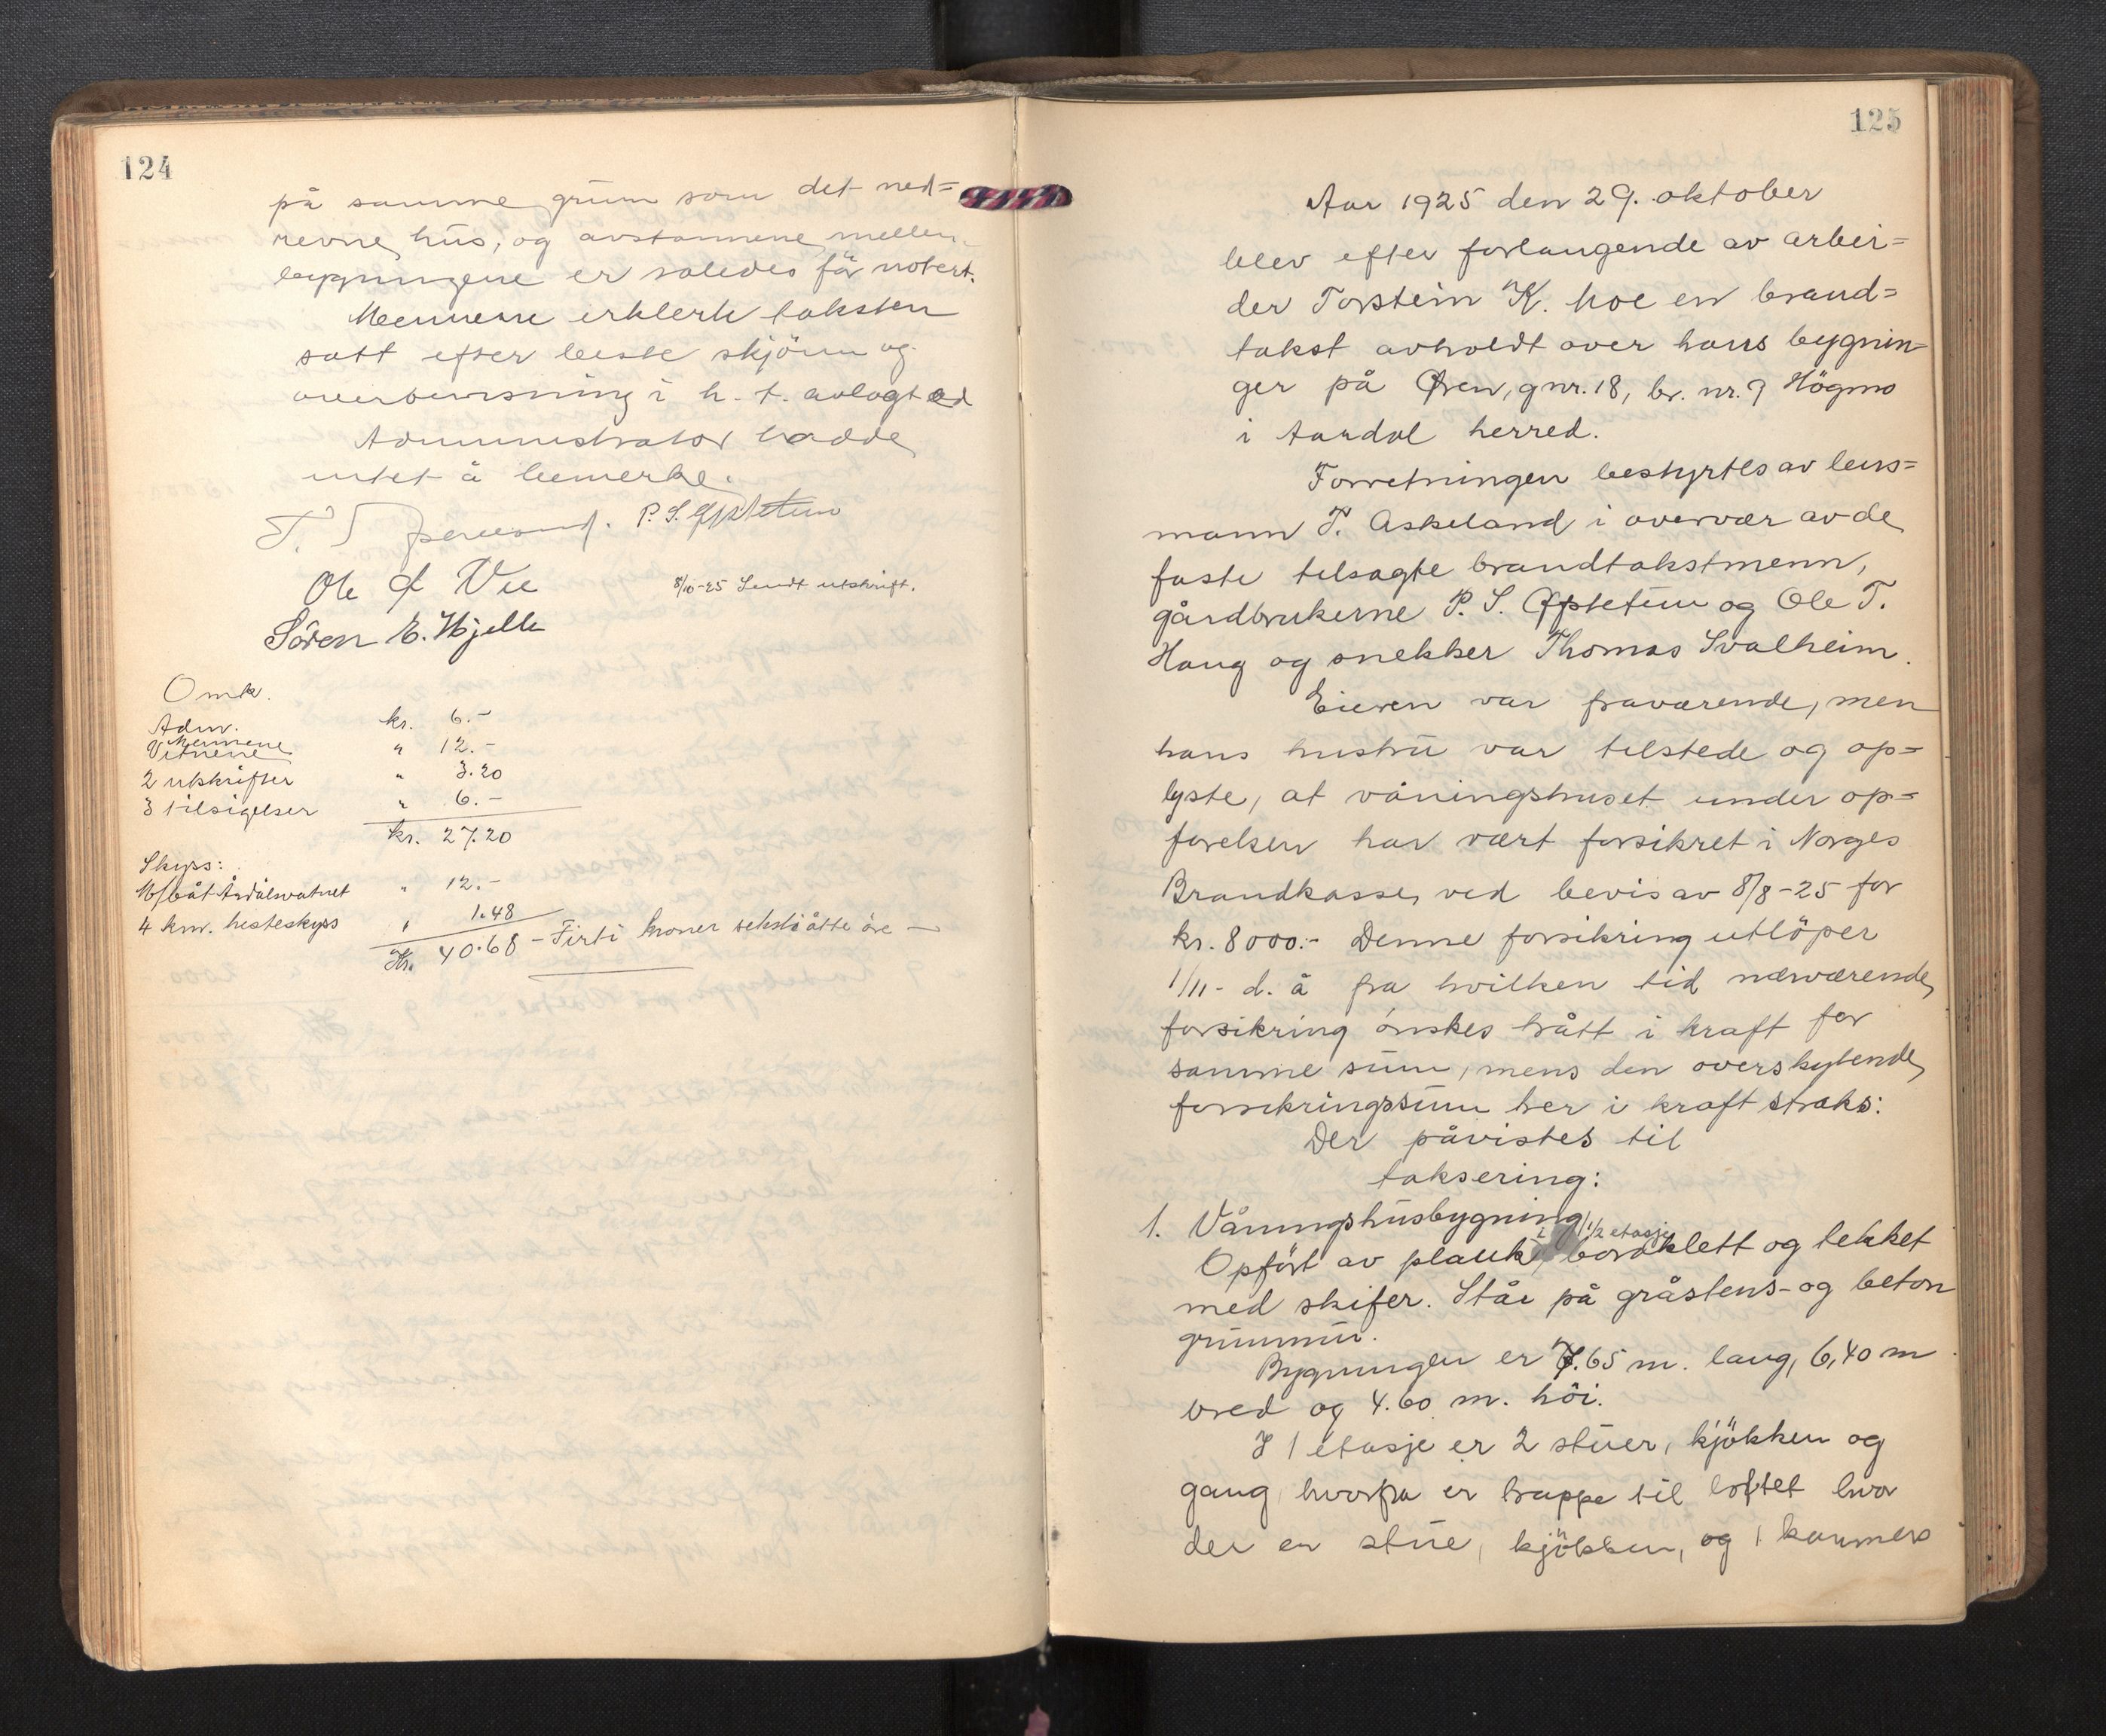 124
på samme grunn som det ned=
revne hus, og avstannene mellem
bygningene er således før notert.
Mennene erklerte taksten
satt efter beste skjönn og
overbevisning i h. t. avlagt ed
Administrator hadde
intet å bemerke.
P. S. Opstetun
Ole O Vee
8/10-25 Sendt utskrift.
Sören E. Hjelle
Omk.
Adm. kr. 6.-
Mennene
Vitnene " 12.-
2 utskrifter " 3.20
3 tilsigelser " 6.-
kr. 27.20
Skyss:
M/båt Årdalsvatnet " 12.-
4 km. hesteskyss " 1.48
Kr. 40.68 - Firti kroner sekstiåtte öre -
125
Aar 1925 den 29. oktober
blev efter forlangende av arbei=
der Torstein K. Moe en brand=
takst avholdt over hans bygnin=
ger på Øren, gnr. 18, br. nr. 9 Högmo
i Aardal herred.
Forretningen bestyrtes av lens=
mann T. Askeland i overvær av de
faste tilsagte brandtakstmenn,
gårdbrukerne P. S. Opstetun og Ole T.
Haug og snekker Thomas Svalheim.
Eieren var fraværende, men
hans hustru var tilstede og op=
lyste, at våningshuset under op=
förelsen har vært forsikret i Norges
Brandkasse, ved bevis av 8/8-25 for
kr. 8000.- Denne forsikring utlöper
1/11- d. å fra hvilken tid nærværende
forsikring önskes trått i kraft for
samme sum, mens den overskytende
forsikringssum trer i kraft straks:
Der påvistes til
taksering:
1. Våningshusbygning
i 1 1/2 etasje
Opfört av plank, bordklett og tekket
med skifer. Står på gråstens- og beton
grunnmur.
Bygningen er 7.65 m. lang, 6,40 m
bred og 4.60 m. höi.
I 1 etasje er 2 stuer, kjökken og
gang, hvorfra er trappe til loftet hvor
der er stue, kjökken, og 1 kammers